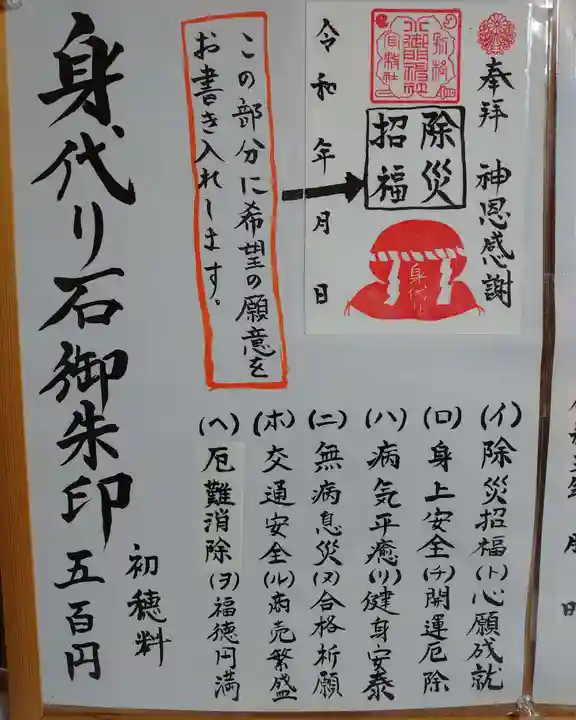 奉拝 神恩感謝
除災
招福
身代り
令和 年 月 日
この部分に希望の願意を
お書き入れします。
身代り石御朱印 五百円
初穂料
(イ)除災招福(ト)心願成就
(ロ)身上安全(チ)開運厄除
(ハ)病気平癒(リ)健身安泰
(ニ)無病息災(ヌ)合格祈願
(ホ)交通安全(ル)商売繁盛
(ヘ)厄難消除(ヲ)福徳円満
月